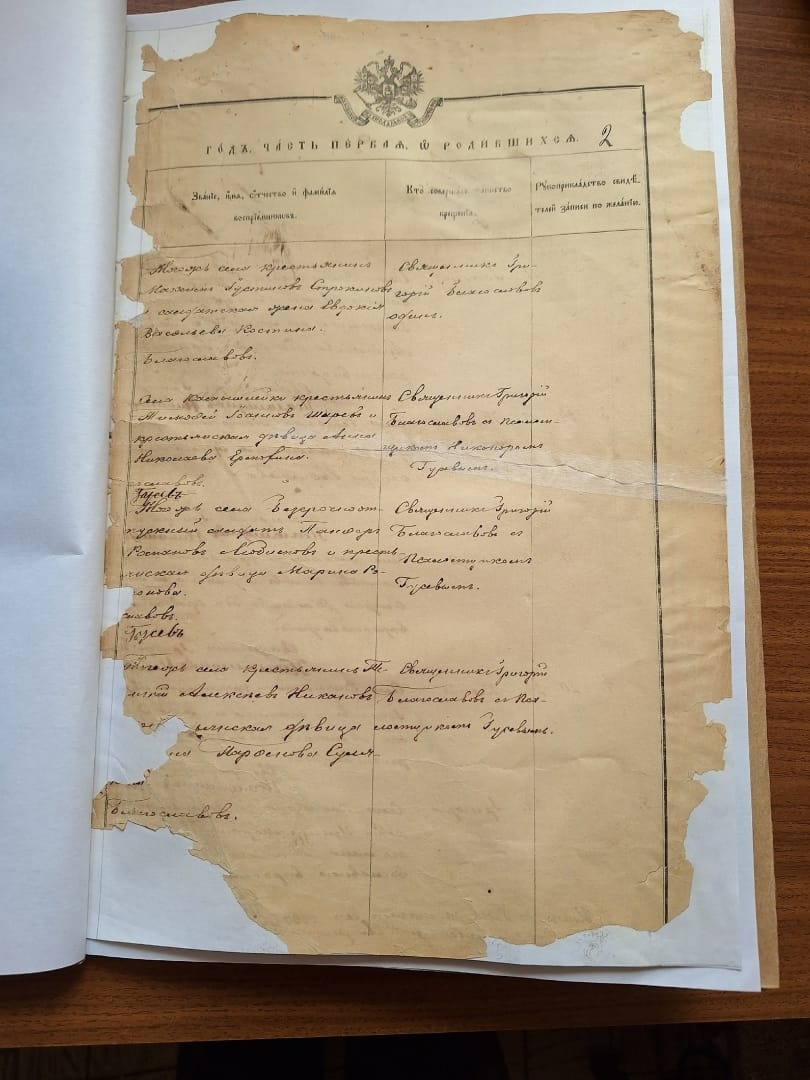 ГОДЪ, ЧАСТЬ ПЕРВАѦ, Ѡ РОДИВШИХСѦ. 2
Званіе, имѧ, отчество и фамилія
воспріѧмниковъ.
Кто совершалъ таинство
крещенія.
Рукоприкладство свидѣ-
телей записи по желанію.
Тогожъ села крестьянинъ
Устиновъ
и солдатская жена Евдокія
Васильева Костина.
Благославовъ.
Священникъ Гри-
горій Благославовъ
одинъ.
Села крестьянинъ
Тимофей и
крестьянская дѣвица Анна
Николаева
славовъ.
Гусевъ
Священникъ Григорій
Благославовъ с псалом-
щикомъ Никоноромъ
Гусевымъ.
Тогожъ села Безсрочноот-
пускный солдатъ
и кресть-
янская дѣвица Марина Ро-
манова.
славовъ.
Гусевъ
Священникъ Григорій
Благославовъ с
Псаломщикомъ
Гусевымъ.
Тогожъ села крестьянинъ Ти-
Алексѣевъ Никановъ
янская дѣвица
на
Благославовъ.
Священникъ Григорій
Благославовъ с Пса-
ломщикомъ Гусевымъ.